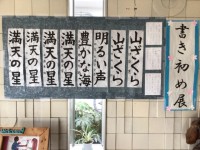 書き初め展
山ざくら
山ざくら
明るい声
豊かな海
満天の星
満天の星
満天の星
満天の星